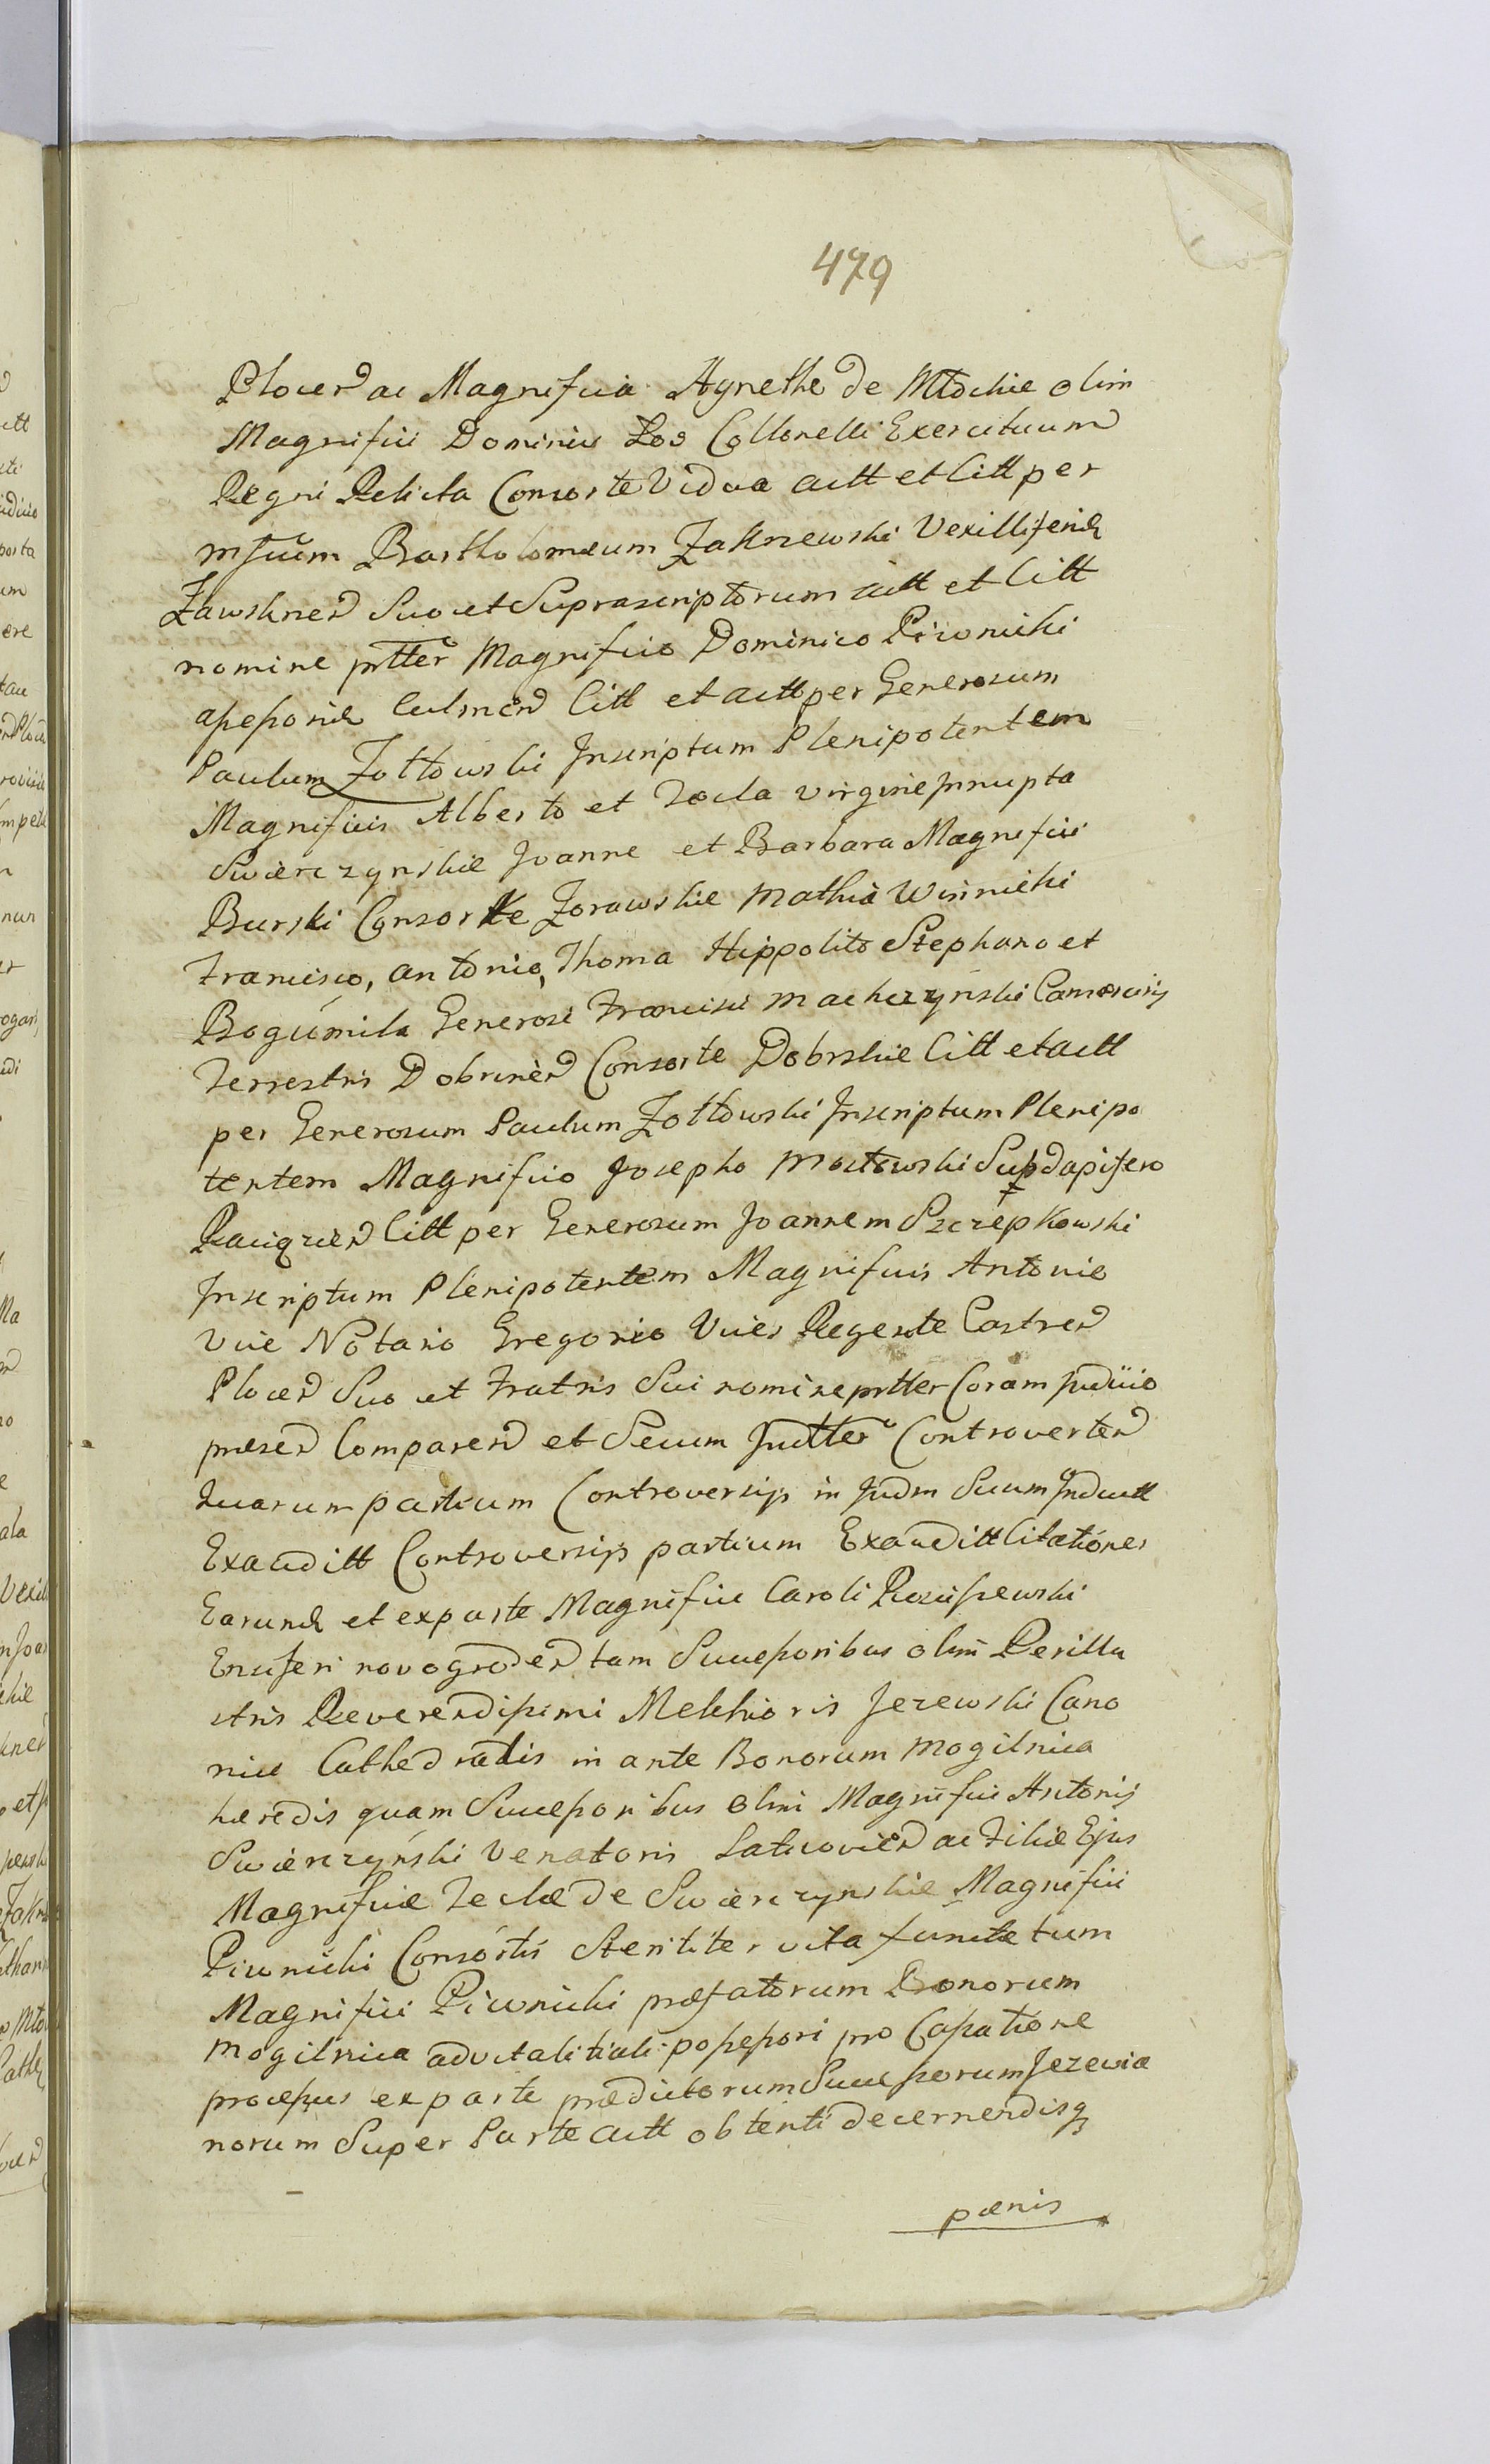 479
Plocen ac Magnifica Agnethe de Młockie olim
Magnifici Dominici Los Collonelli Exercituum
Regni Relicta Consorte Vidua actt et Citt per
mfcum Bartholomæum Zakrzewski Vexilliferid
Zawskrzen Suo et Suprascriptorum actt et Citt
nomine prtter Magnifico Dominico Piwnicki
assessorid Culmen Citt et actt per Generosum
Paulum Zołtowski Inscriptum Plenipotentem
Magnificis Alberto et Tecla virgine Innupta
Swierczynskie Joanne et Barbara Magnifici
Burski Consorte Zorawskie Mathia Winnicki
Francisco, Antonio, Thoma Hippolito Stephano et
Bogumila Generosi Francisci Macherzynski Camerarij
Terrestris Dobrinen Consorte Dobrskie Citt et actt
per Generosum Paulum Zołtowski Inscriptum Plenipo
tentem Magnifico Josepho Mostowski Subdapifero
Raciązien Citt per Generosum Joannem Szczepkowski
Inscriptum Plenipotentem Magnificis Antonio
Vice Notario Gregorio Vices Regente Castren
Plocen Suo et Fratris Sui nomine prtter Coram Judicio
præsen Comparen et Secum Judtter Controverten
Quarum partium Controversijs in Judm Suum Induett
Exauditt Controversijs partium Exauditt Citationes
Earund et ex parte Magnifici Caroli Rosciszewski
Ensiferi novogroden tam Successoribus olim Perillu
stris Reverendissimi Melchioris Jezewski Cano
nici Cathedralis in ante Bonorum Mogilnica
hæredis quam Successoribus olim Magnifici Antonij
Swierczyński Venatoris Laticovien ac Filiæ Ejus
Magnificæ Teclæ de Swierczynskie Magnifici
Piwnicki Consortis Steriliter vita functæ tum
Magnifici Piwnicki præfatorum Bonorum
Mogilnica advitalitiali possessori pro Cassatione
processus ex parte prædictorum Successorum Jezewia
norum Super Parte actt obtenti decernendisq
pænis